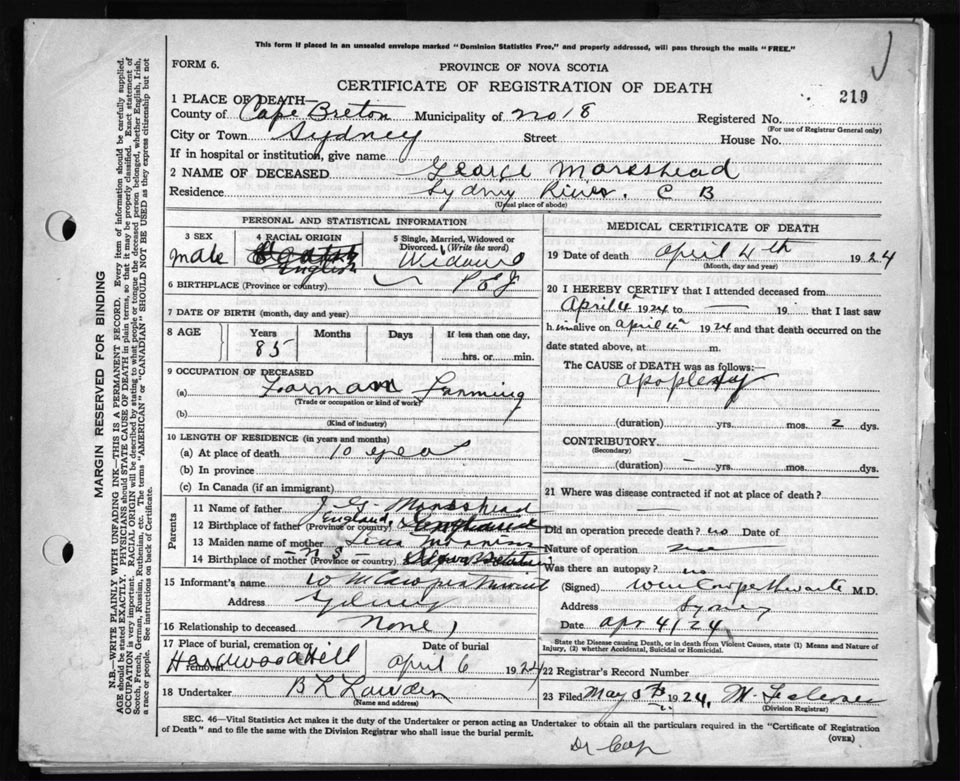 This form if placed in an unsealed envelope marked "Dominion Statistics Free," and properly addressed, will pass through the mails "FREE."
FORM 6.
PROVINCE OF NOVA SCOTIA
CERTIFICATE OF REGISTRATION OF DEATH
219
1 PLACE OF DEATH
County of Cape Breton Municipality of no 18 Registered No.
(For use of Registrar General only)
City or Town Sydney Street House No.
If in hospital or institution, give name
2 NAME OF DECEASED George Moreshead
Residence Sydney River. C B
(Usual place of abode)
PERSONAL AND STATISTICAL INFORMATION
3 SEX
male
4 RACIAL ORIGIN
English
5 Single, Married, Widowed or Divorced. (Write the word)
6 BIRTHPLACE (Province or country) P E I
7 DATE OF BIRTH (month, day and year)
8 AGE Years Months Days If less than one day,
85 hrs. or min.
9 OCCUPATION OF DECEASED
(a) Farming
(Trade or occupation or kind of work)
(b)
(Kind of industry)
10 LENGTH OF RESIDENCE (in years and months)
(a) At place of death 10 years
(b) In province
(c) In Canada (if an immigrant)
Parents
11 Name of father J G Moreshead
12 Birthplace of father (Province or country) England
13 Maiden name of mother
14 Birthplace of mother (Province or country) N S
15 Informant's name
Address Sydney
16 Relationship to deceased None
17 Place of burial, cremation or removal Date of burial
Hardwood Hill April 6 1924
18 Undertaker B L Lowden
(Name and address)
MEDICAL CERTIFICATE OF DEATH
19 Date of death April 4th 1924
(Month, day and year)
20 I HEREBY CERTIFY that I attended deceased from
April 4 1924 to — 19 that I last saw
h im alive on April 4 1924 and that death occurred on the
date stated above, at m.
The CAUSE of DEATH was as follows:—
apoplexy
(duration) yrs. mos. 2 dys.
CONTRIBUTORY.
(Secondary)
(duration) – yrs. mos. dys.
21 Where was disease contracted if not at place of death?
Did an operation precede death? no Date of
Nature of operation
Was there an autopsy? no
(Signed) Wm Cowperthwaite M.D.
Address Sydney
Date Apr 4/24
State the Disease causing Death, or in death from Violent Causes, state (1) Means and Nature of Injury, (2) whether Accidental, Suicidal or Homicidal.
22 Registrar's Record Number
23 Filed May 1924. M.
(Division Registrar)
SEC. 46—Vital Statistics Act makes it the duty of the Undertaker or person acting as Undertaker to obtain all the particulars required in the "Certificate of Registration
of Death" and to file the same with the Division Registrar who shall issue the burial permit.
(OVER)
MARGIN RESERVED FOR BINDING
N.B.—WRITE PLAINLY WITH UNFADING INK—THIS IS A PERMANENT RECORD. Every item of information should be carefully supplied.
AGE should be stated EXACTLY. PHYSICIANS should STATE CAUSE OF DEATH in plain terms, so that it may be properly classified. Exact statement of
OCCUPATION is very important. RACIAL ORIGIN will be described by stating to what people or tongue the deceased person belonged, whether English, Irish,
Scotch, French, German, Russian, Ruthenian, etc. The terms "AMERICAN" or "CANADIAN" SHOULD NOT BE USED as they express citizenship but not
a race or people. See instructions on back of Certificate.